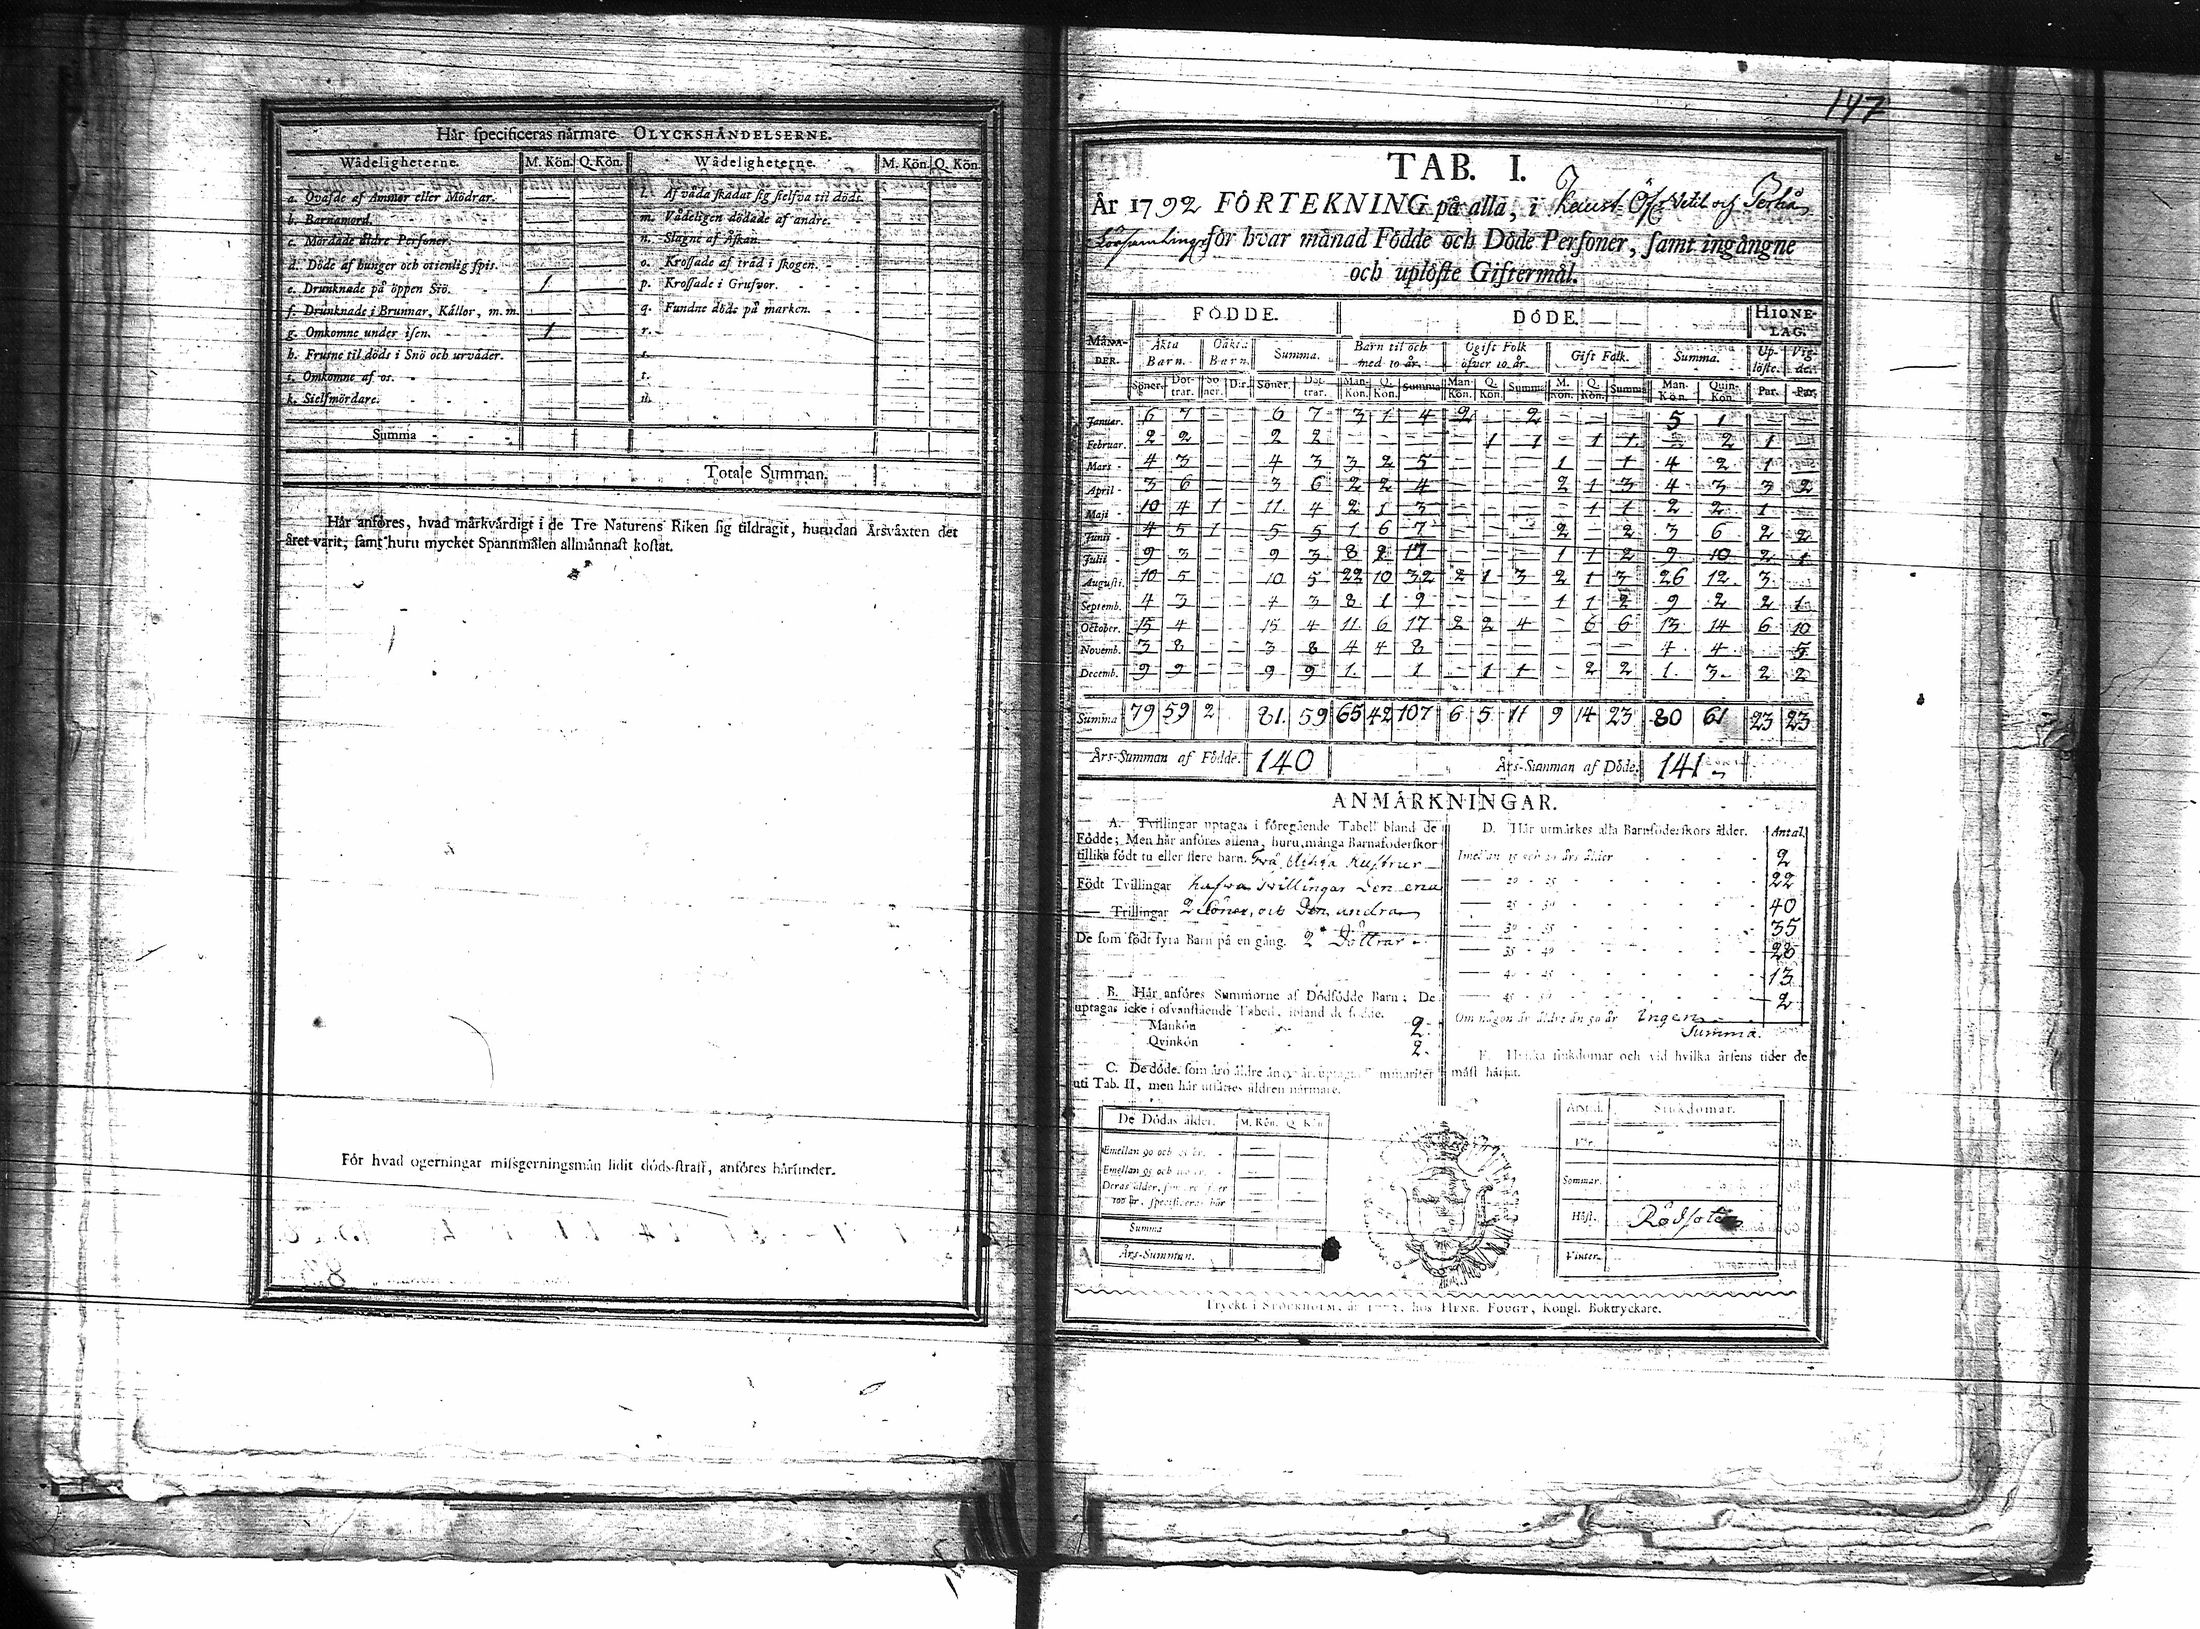 Här specificeras närmare OLYCKSHÄNDELSERNE.
Wådeligheterne. M. Kön. Q. Kön. Wådeligheterne. M. Kön. Q. Kön.
a. Qväfde af Ammor eller Mödrar. l. Af våda skadat sig sielfva til döds.
b. Barnamord. m. Vådeligen dödade af andre.
c. Mördade äldre Personer. n. Slagne af Åskan.
d. Döde af hunger och otienlig spis. o. Krossade af träd i skogen.
e. Drunknade på öppen Siö. 1 p. Krossade i Grufvor.
f. Drunknade i Brunnar, Källor, m. m. q. Fundne döde på marken.
g. Omkomne under isen. 1 r.
h. Frusne til döds i Snö och urväder. s.
i. Omkomne af os. t.
k. Sielfmördare. u.
Summa
Totale Summan.
Här anföres, hvad märkvärdigt i de Tre Naturens Riken sig tildragit, hurudan Årsväxten det
året varit, samt huru mycket Spannmålen allmännast kostat.
För hvad ogerningar missgerningsmän lidit döds-straff, anföres härunder.
147
TAB. I.
År 1792 FÖRTEKNING på alla, i Kaust. Öf. Vetil och Perho
Församlingar för hvar månad Födde och Döde Personer, samt ingångne
och uplöste Giftermål.
FÖDDE. DÖDE. HIONE-LAG.
MÅNA-DER. Äkta Barn. Oäkt. Barn. Summa. Barn til och med 10 år. Ogift Folk öfver 10 år. Gift Folk. Summa. Up-löste. Vig-de.
Söner. Dot-trar. Sö-ner. D:r. Söner. Dot-trar. Man-Kön. Q. Kön. Summa Man-Kön. Q. Kön. Summa M. Kön. Q. Kön. Summa Man-Kön. Quin-Kön. Par. Par.
Januar. 6 7 - - 6 7 3 1 4 2 - 2 - - - 5 1 - -
Februar. 2 2 - - 2 2 - - - - 1 1 - 1 1 - 2 1 -
Mars 4 3 - - 4 3 3 2 5 - - - 1 - 1 4 2 1 -
April 3 6 - - 3 6 2 2 4 - - - 2 1 3 4 3 3 2
Maji 10 4 1 - 11 4 2 1 3 - - - - 1 1 2 2 1 -
Junii 4 5 1 - 5 5 1 6 7 - - - 2 - 2 3 6 2 2
Julii 9 3 - - 9 3 8 9 17 - - - 1 1 2 9 10 2 1
Augusti. 10 5 - - 10 5 22 10 32 2 1 3 2 1 3 26 12 3 -
Septemb. 4 3 - - 4 3 8 1 9 - - - 1 1 2 9 2 2 1
October. 15 4 - - 15 4 11 6 17 2 2 4 - 6 6 13 14 6 10
Novemb. 3 8 - - 3 8 4 4 8 - - - - - - 4 4 - 5
Decemb. 9 9 - - 9 9 1 - 1 - 1 1 - 2 2 1 3 2 2
Summa 79 59 2 81. 59 65 42 107 6 5 11 9 14 23 80 61 23 23
Års-Summan af Födde. 140 Års-Summan af Döde. 141
ANMÄRKNINGAR.
A. Tvillingar uptagas i föregående Tabell bland de
Födde; Men här anföres allena, huru många Barnaföderskor
tillika födt tu eller flere barn. Två äkta Hustrur
Födt Tvillingar hafva tvillingar den ena
Trillingar 2 Söner, och den andra
De som födt fyra Barn på en gång. 2 Döttrar
B. Här anföres Summorne af Dödfödde Barn: De
uptagas icke i ofvanstående Tabell, ibland de födde.
Mankön 2.
Qvinkön 2.
C. De döde, som äro äldre än 90 år, uptagas summariter
uti Tab. II, men här utsättes åldren närmare.
De Dödas ålder. M. Kön. Q. Kön
Emellan 90 och 95 år.
Emellan 95 och 100 år.
Deras ålder, som äro öfver
100 år, specificeras här
Summa
Års-Summan.
D. Här utmärkes alla Barnföderskors ålder. Antal.
Imellan 15 och 20 års ålder 2
20 - 25 22
25 - 30 40
30 - 35 35
35 - 40 26
40 - 45 13
45 - 50 2
Om någon är äldre än 50 år Ingen
Summa.
E. Hvilka siukdomar och vid hvilka årsens tider de
mäst härjat.
Årst.d. Siukdomar.
Vår.
Sommar.
Höst. Rödsoten
Vinter.
Tryckt i STOCKHOLM, hos HENR. FOUGT, Kongl. Boktryckare.